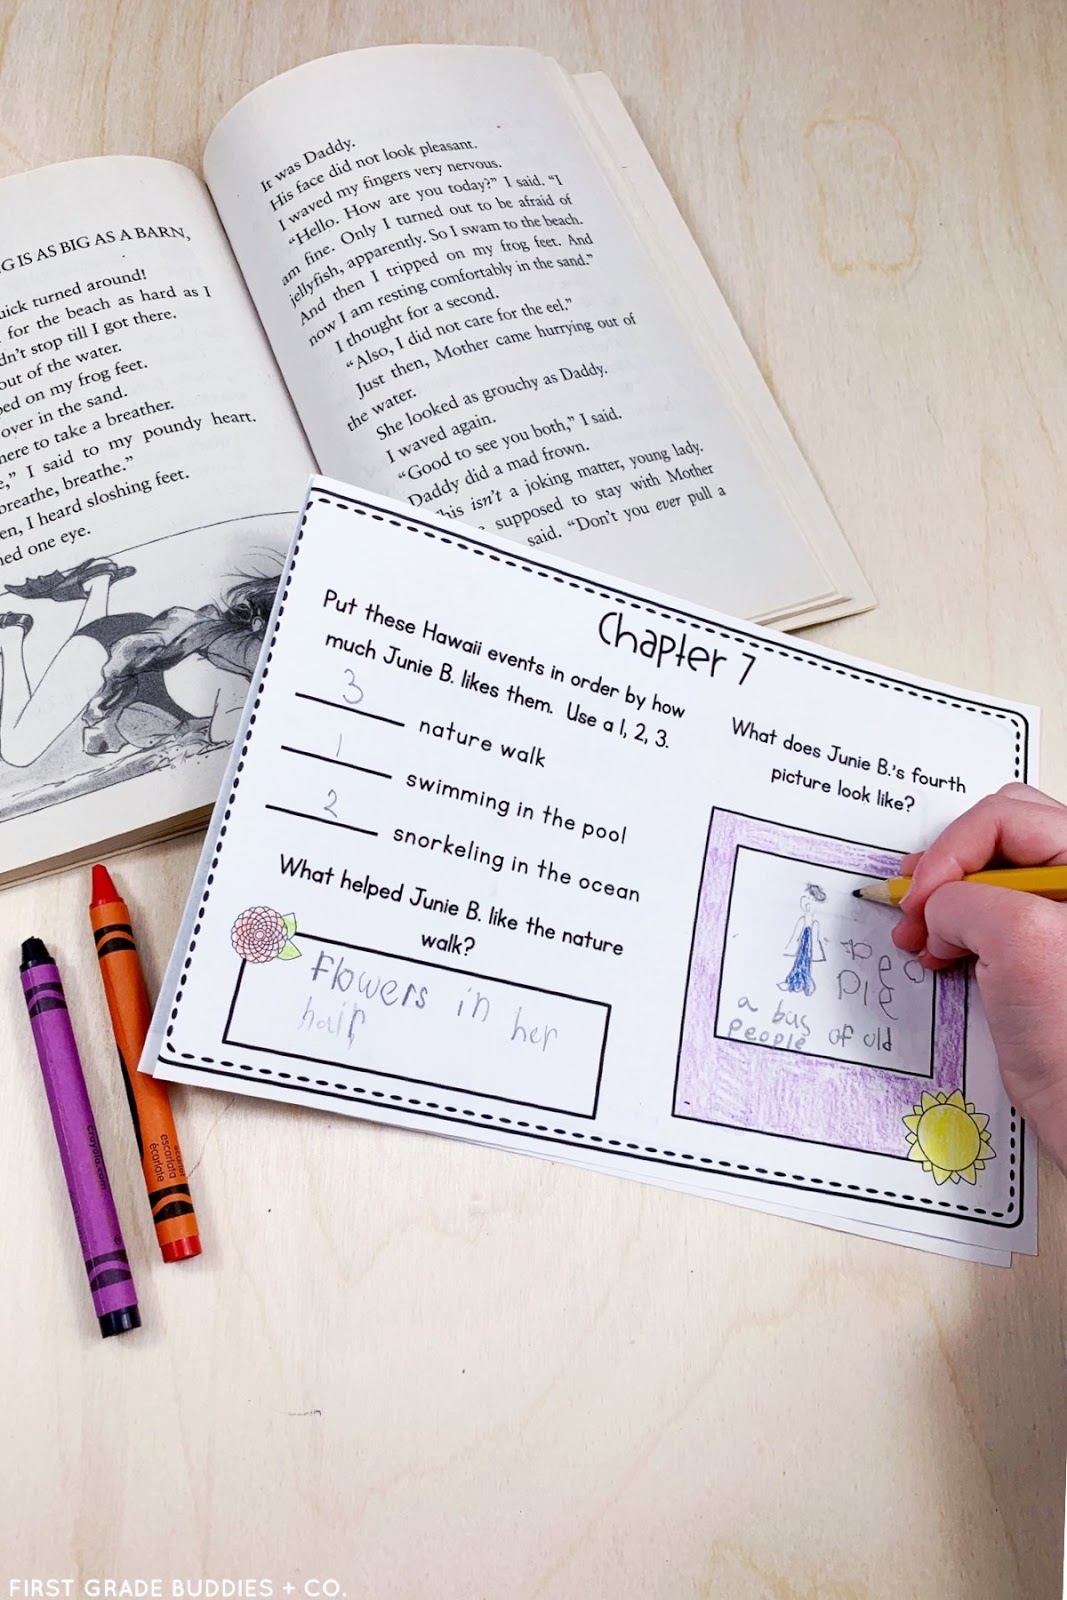 G IS AS BIG AS A BARN,
uick turned around!
for the beach as hard as I
dn't stop till I got there.
out of the water.
ped on my frog feet.
over in the sand.
here to take a breather.
," I said to my poundy heart.
breathe, breathe."
en, I heard sloshing feet.
ned one eye.
It was Daddy.
His face did not look pleasant.
I waved my fingers very nervous.
"Hello. How are you today?" I said. "I
am fine. Only I turned out to be afraid of
jellyfish, apparently. So I swam to the beach.
And then I tripped on my frog feet. And
now I am resting comfortably in the sand."
I thought for a second.
"Also, I did not care for the eel."
Just then, Mother came hurrying out of
the water.
She looked as grouchy as Daddy.
I waved again.
"Good to see you both," I said.
Daddy did a mad frown.
his isn't a joking matter, young lady.
supposed to stay with Mother
said. "Don't you ever pull a
Chapter 7
Put these Hawaii events in order by how
much Junie B. likes them. Use a 1, 2, 3.
3 nature walk
1 swimming in the pool
2 snorkeling in the ocean
What helped Junie B. like the nature
walk?
Flowers in her
hair
What does Junie B.'s fourth
picture look like?
a bus of old
people
crayola.com
escarlata
écarlate
FIRST GRADE BUDDIES + CO.